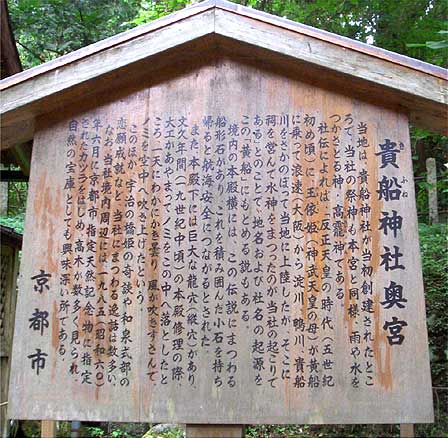 貴船神社奥宮
きふね
当地は、貴船神社が当初創建されたとこ
ろで、当社の祭神も本宮と同様、雨や水を
つかさどる神「高龗神」である。
社伝によれば、反正天皇の時代（五世紀
初め頃）に玉依姫（神武天皇の母）が黄船
に乗って浪速（大阪）から淀川、鴨川、貴船
川をさかのぼって当地に上陸したが、そこに
祠を営んで水神をまつったのが当社の起こりで
あるとのことで、地名および社名の起源を
この「黄船」にもとめる説もある。
境内の本殿横には、この伝説にまつわる
船形石があり、これを積み囲んだ小石を持ち
帰ると航海安全につながるとされた。
また、本殿下には巨大な龍穴（縦穴）があり、
文久年間（一九世紀中頃）の本殿修理の際、
大工があやまってのみをこの中へ落としたと
ころ、一天にわかにかき曇り、風が吹きすさんで、
ノミを空中へ吹き上げたという。
このほか、宇治の橋姫の奇談や和泉式部の
恋願成就など、当社にまつわる逸話は数多い。
なお、当社境内周辺には、一九八五（昭和六〇）
年六月に京都市指定天然記念物に指定
されたカツラをはじめ、高木が数多く見られ、
自然の宝庫としても興味深い所である。
京都市